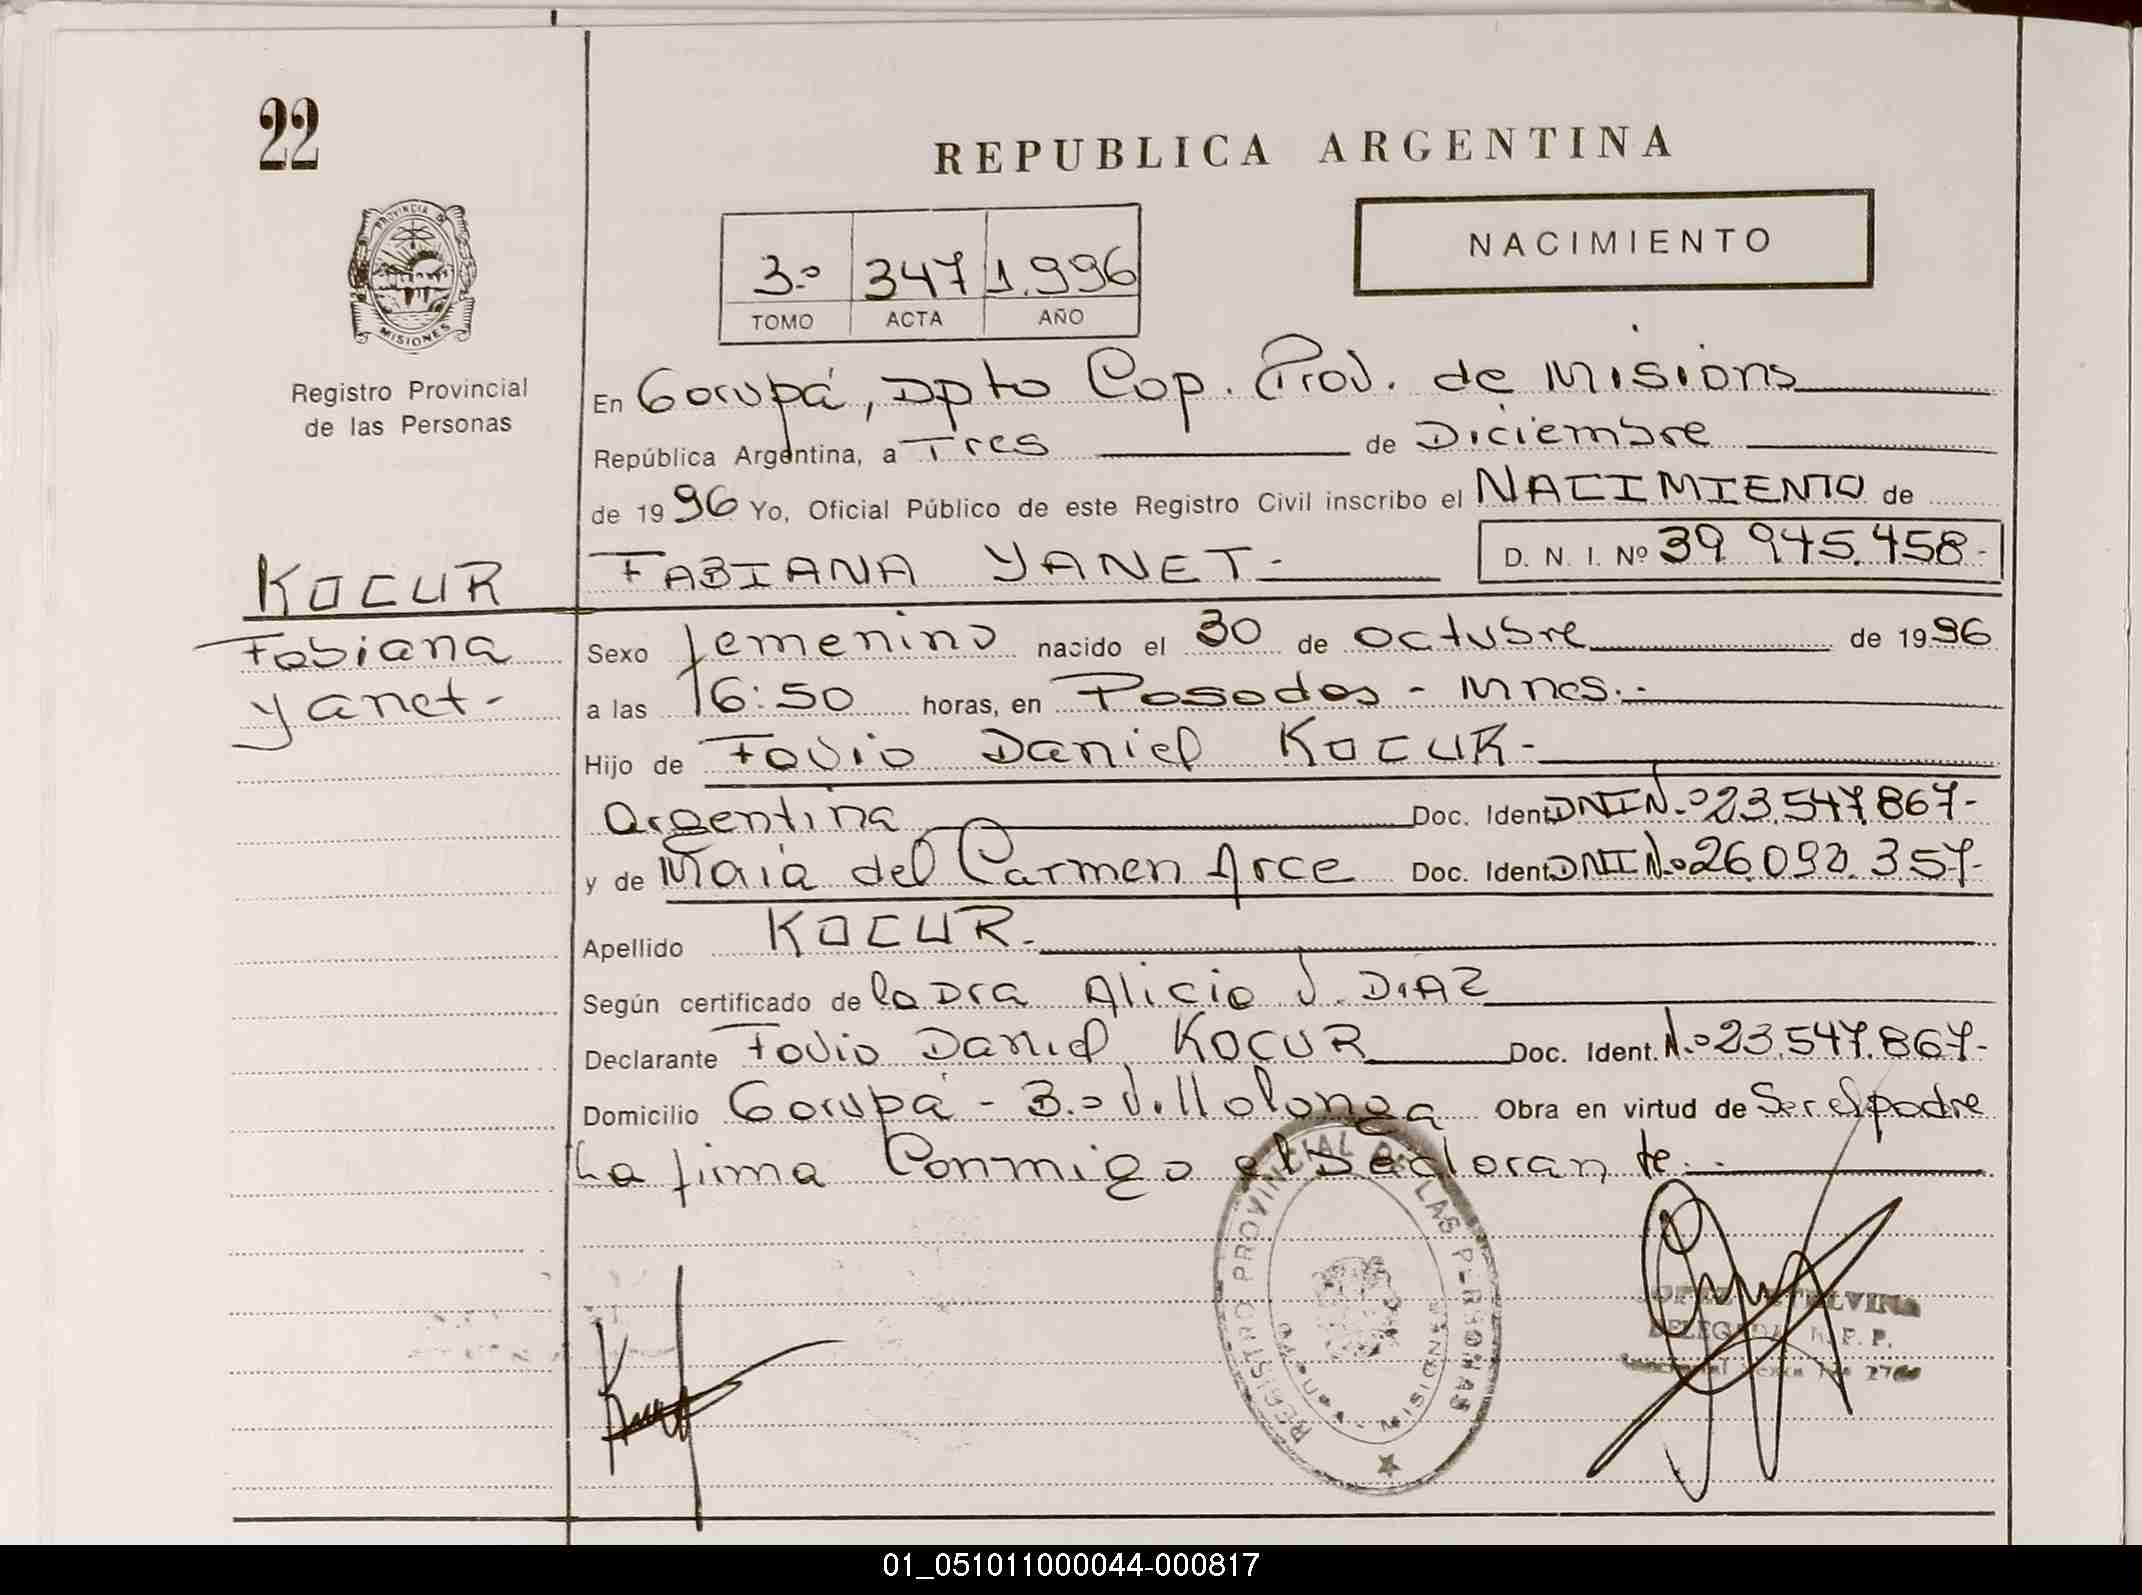 22
REPUBLICA ARGENTINA
PROVINCIA DE
MISIONES
NACIMIENTO
3.º 347 1.996
TOMO ACTA AÑO
Registro Provincial
de las Personas
En Garupá, Dpto Cap. Prov. de Misions
República Argentina, a Tres de Diciembre
de 1996 Yo, Oficial Público de este Registro Civil inscribo el NACIMIENTO de
FABIANA YANET.- D. N. I. Nº 39.945.458-
KOCUR
Fabiana
Yanet-
Sexo femenino nacido el 30 de octubre de 1996
a las 16:50 horas, en Posadas - Mnes.-
Hijo de Favio Daniel KOCUR-
Argentina Doc. Ident. DNI N.º 23.547.867-
y de Maia del Carmen Arce Doc. Ident. DNI N.º 26.092.357-
Apellido KOCUR.-
Según certificado de la Dra Alicia J. DIAZ
Declarante Favio Daniel KOCUR Doc. Ident. N.º 23.547.867-
Domicilio Garupá - B.º Villalonga Obra en virtud de Ser el padre
La firma Conmigo el Declarante.-
REGISTRO PROVINCIAL DE LAS PERSONAS
MISIONES
DELEGADA R. P. P.
01_051011000044-000817